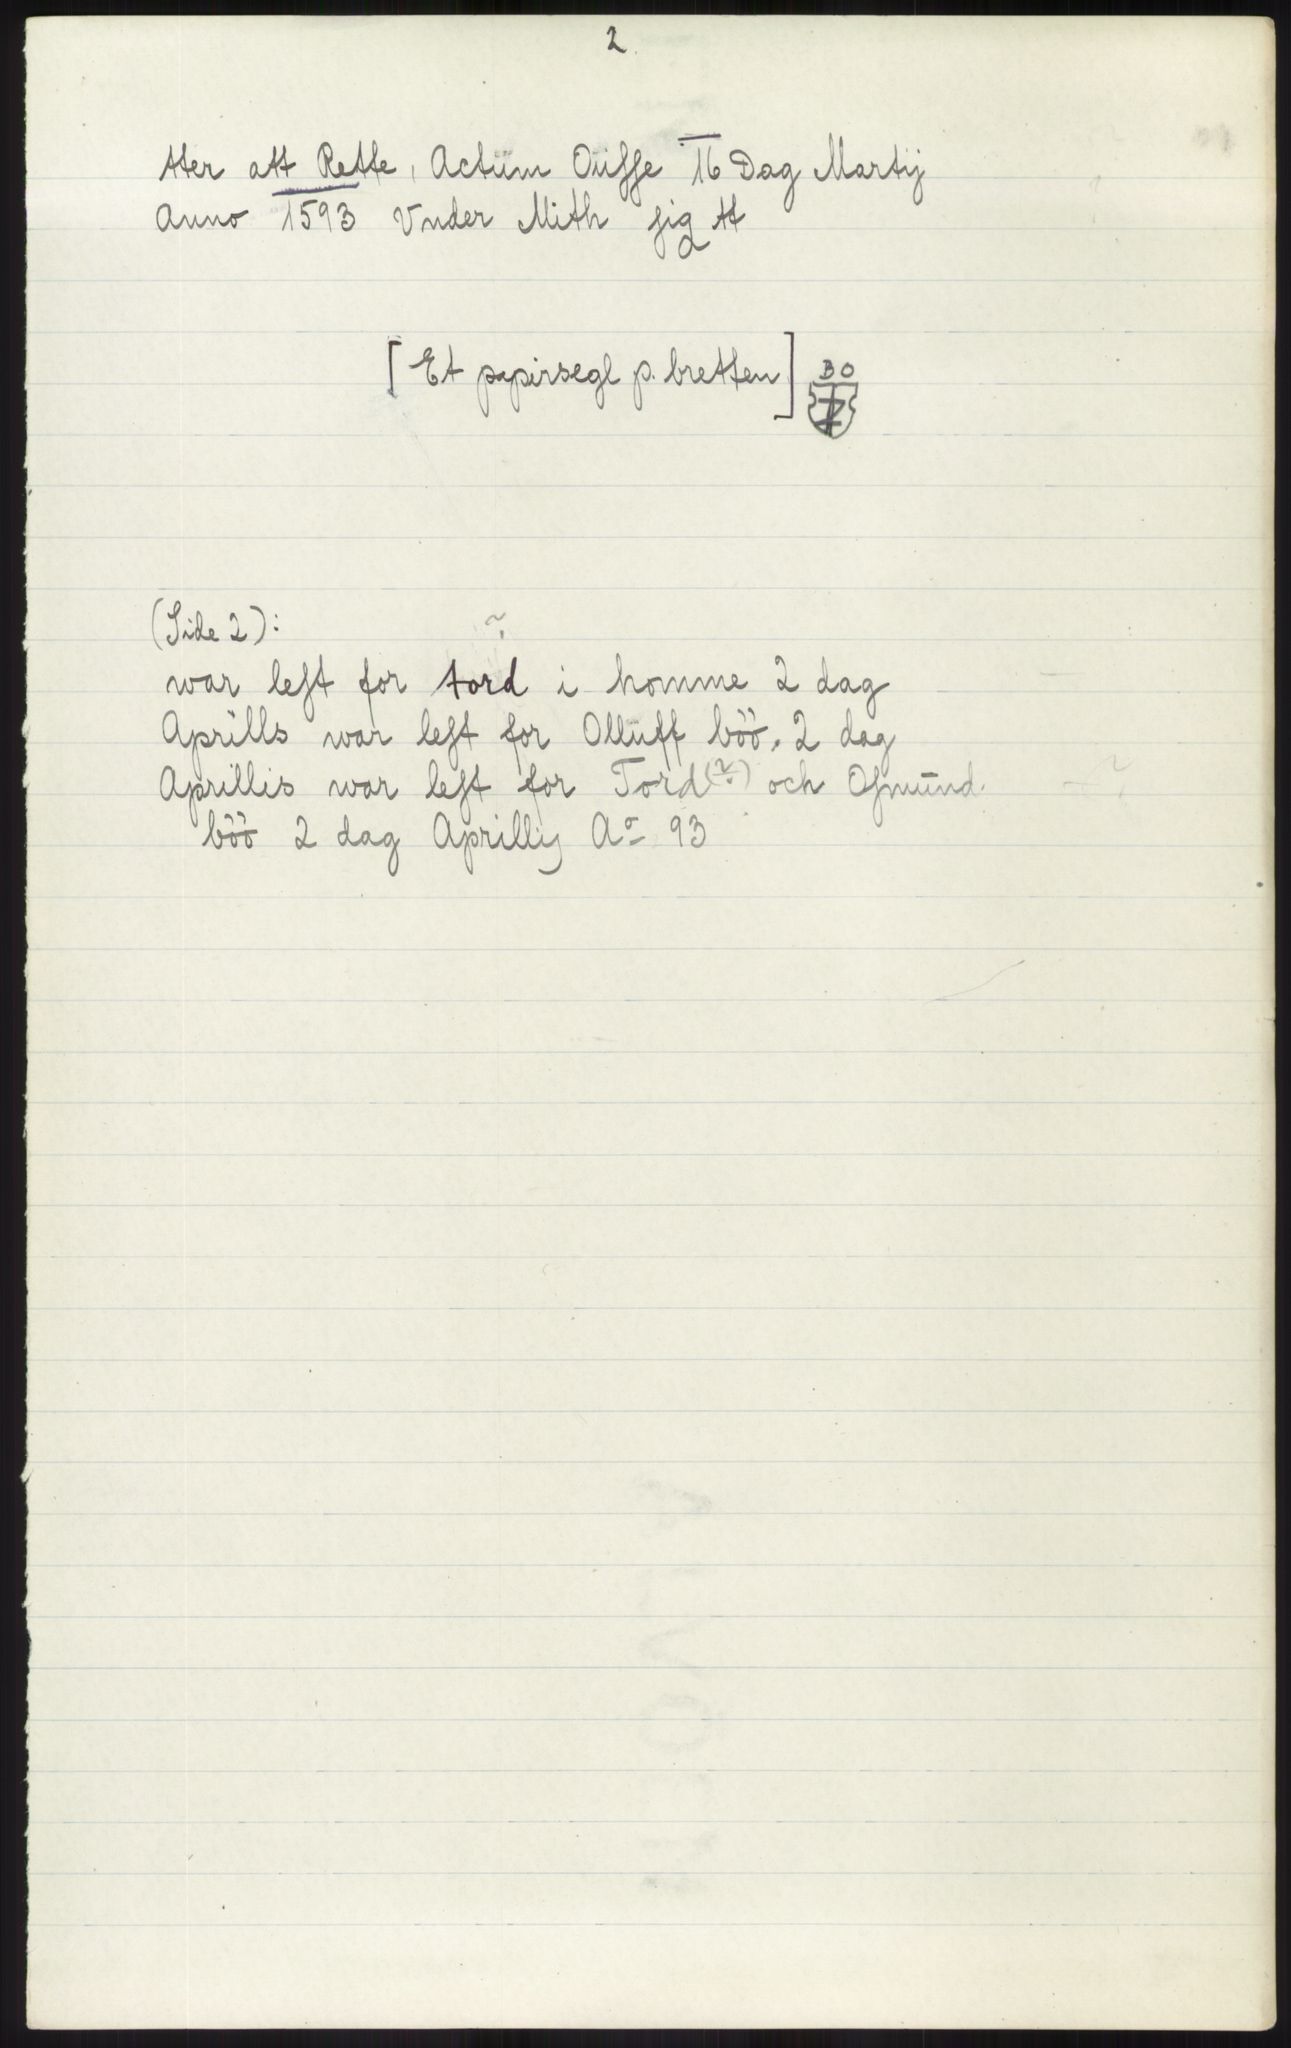 2
tter att Rette, Actüm Oüsse 16 Dag Martij
Anno 1593 Vnder Mith sig tt
[Et papirsegl p. bretten] BO
(Side 2):
war lest for tord i homme 2 dag
Aprills war lest for Ollüff böö. 2 dag
Aprillis war lest for Tord(?) och Osmünd
böö 2 dag Aprillis Ao 93